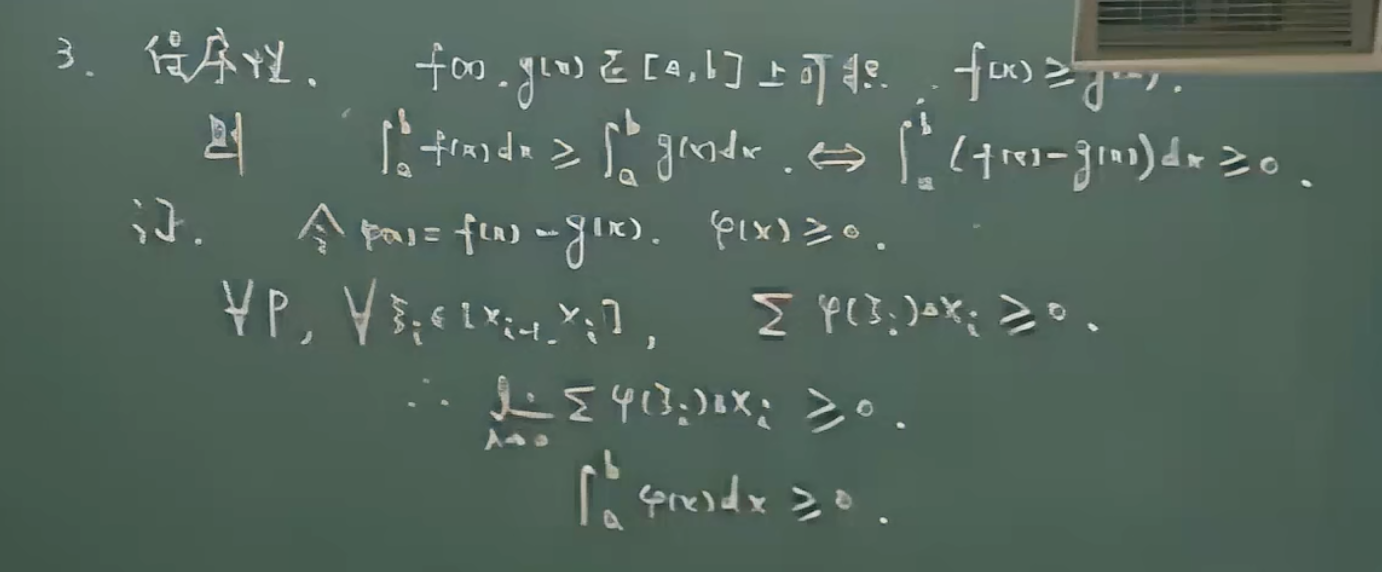 3. 保序性. f(x), g(x) 在 [a, b] 上可积. f(x) ≥ g(x).
则 ∫_a^b f(x)dx ≥ ∫_a^b g(x)dx. ⇔ ∫_a^b (f(x)-g(x))dx ≥ 0.
证. 令 φ(x) = f(x) - g(x). φ(x) ≥ 0.
∀P, ∀ξ_i ∈ [x_{i-1}, x_i], Σ φ(ξ_i)Δx_i ≥ 0.
∴ lim_{λ→0} Σ φ(ξ_i)Δx_i ≥ 0.
∫_a^b φ(x)dx ≥ 0.